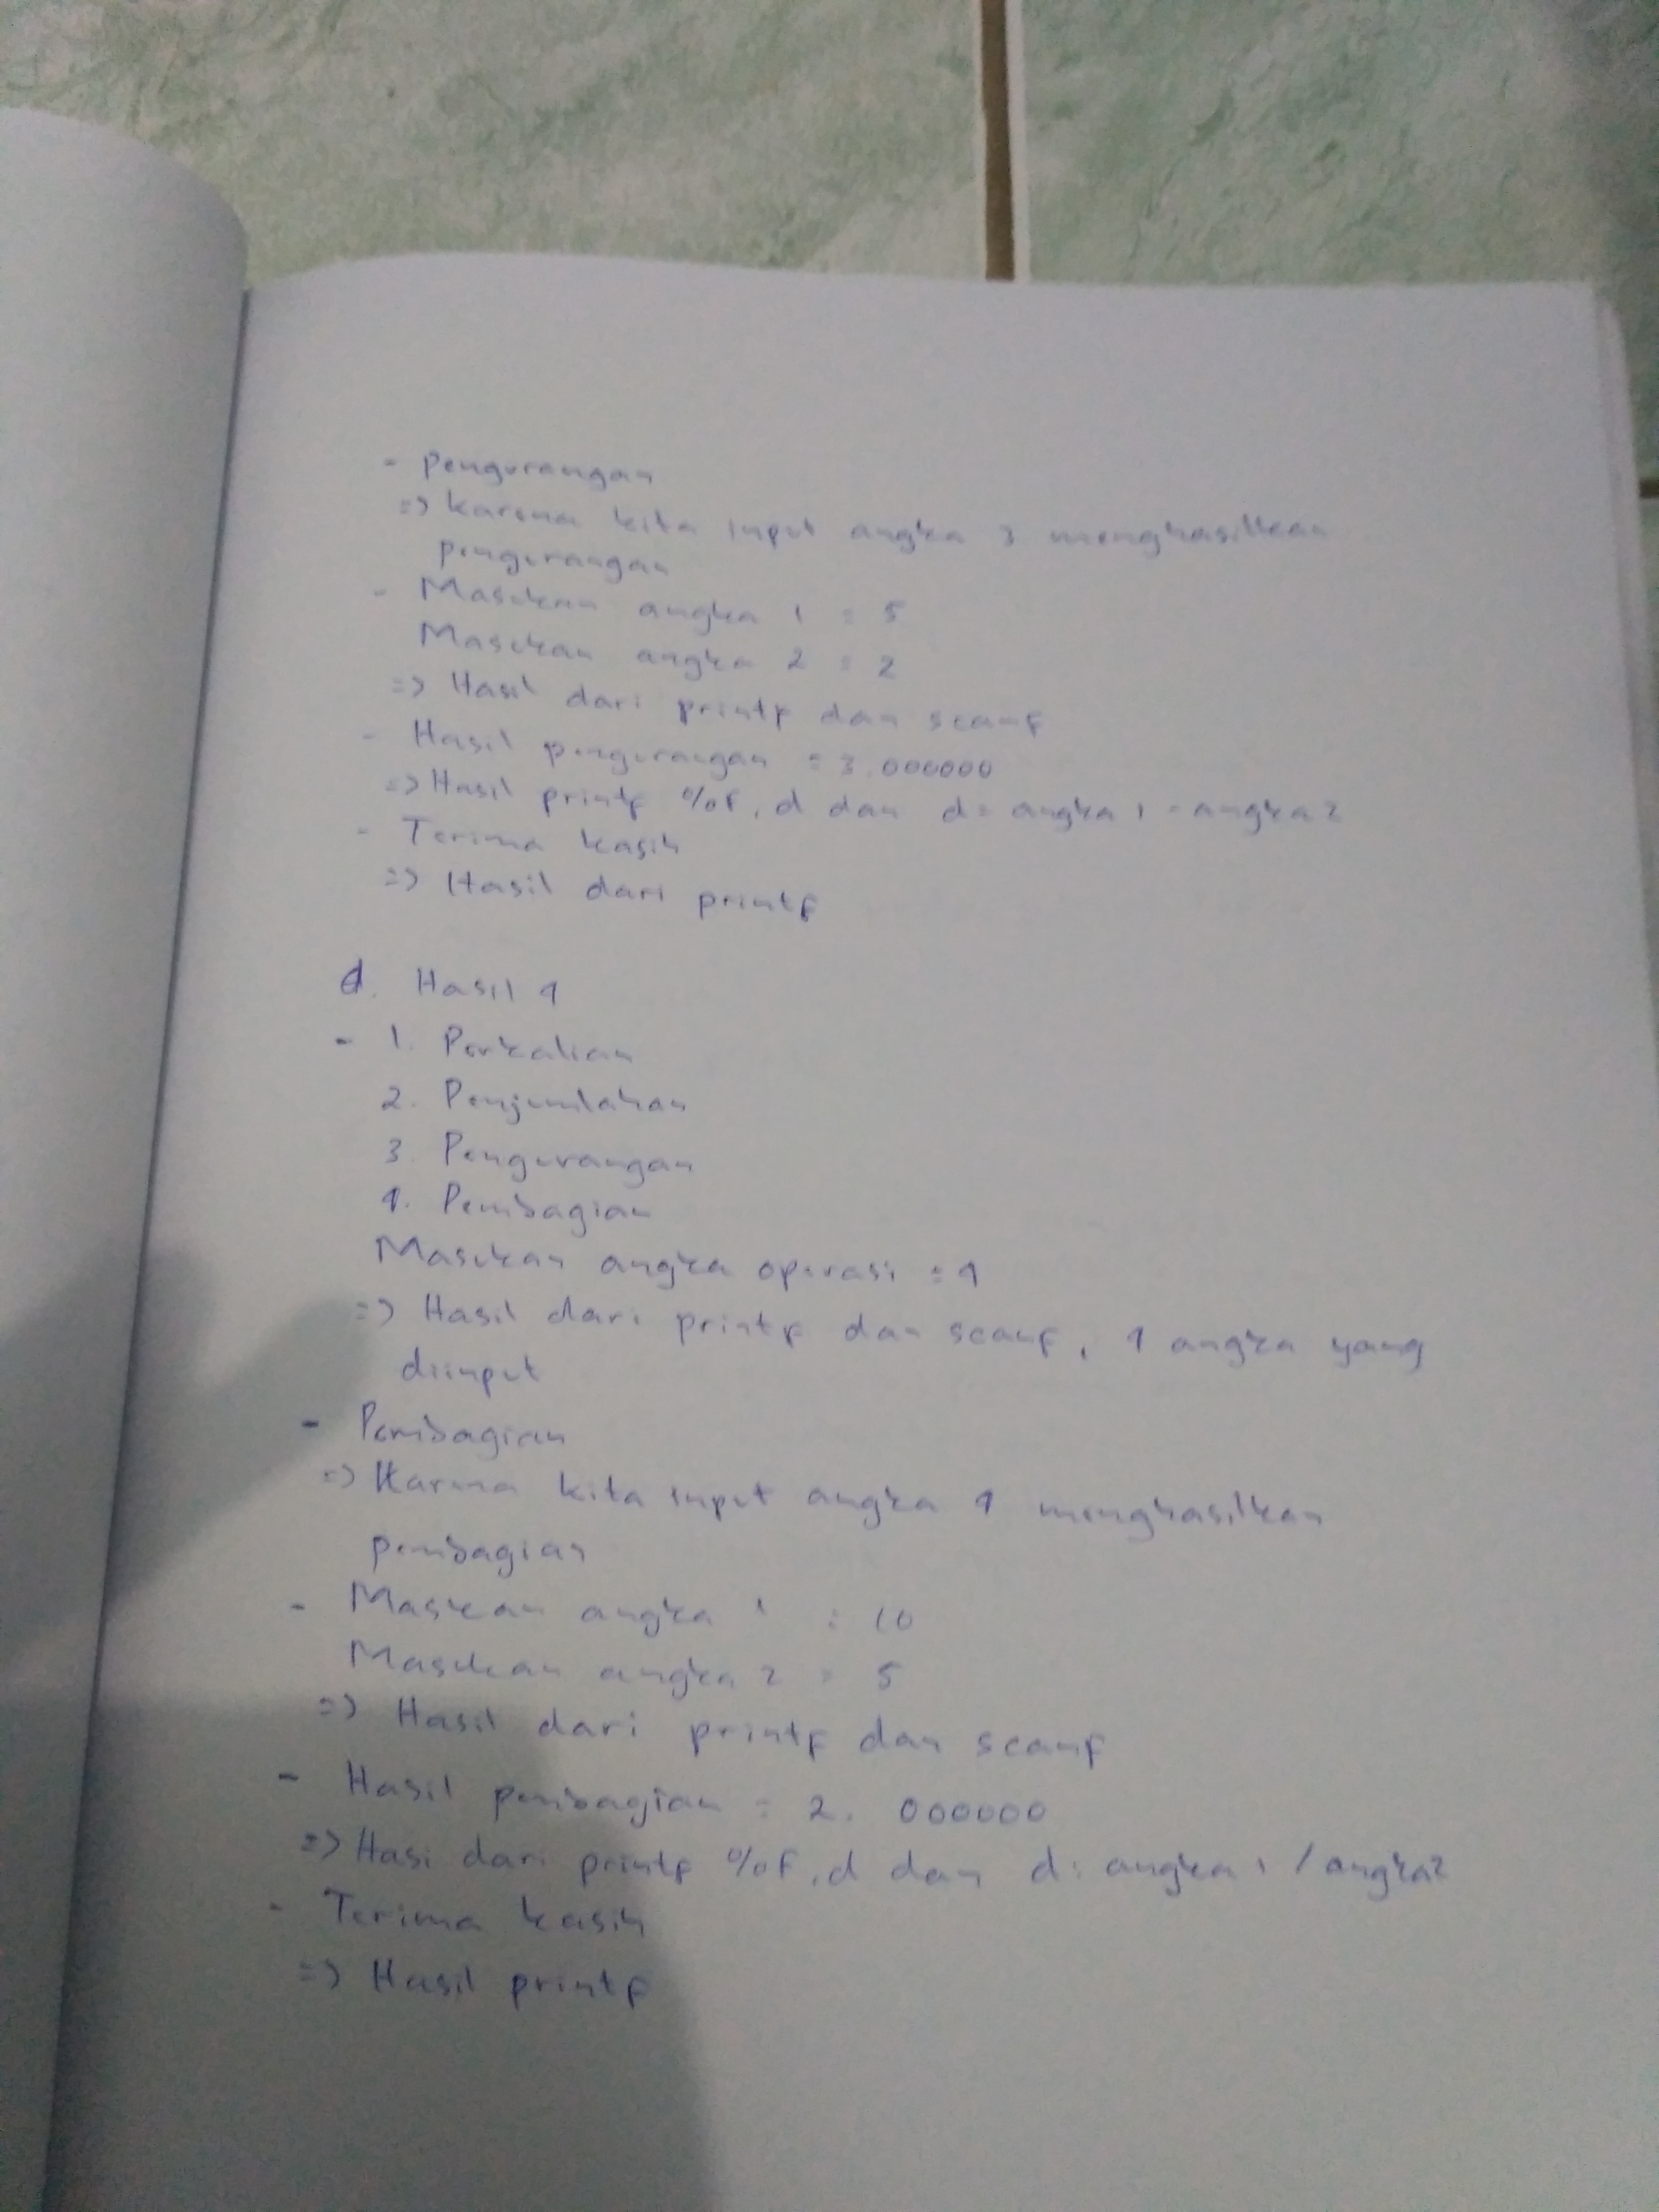 - Pengurangan
=> karena kita input angka 3 menghasilkan
pengurangan
- Masukan angka 1 = 5
Masukan angka 2 = 2
=> Hasil dari printf dan scanf
- Hasil pengurangan = 3.000000
=> Hasil printf %of, d dan d= angka 1 - angka 2
- Terima kasih
=> Hasil dari printf
d. Hasil 4
- 1. Perkalian
2. Penjumlahan
3. Pengurangan
4. Pembagian
Masukan angka operasi = 4
=> Hasil dari printf dan scanf, 4 angka yang
diinput
- Pembagian
=> Karena kita input angka 4 menghasilkan
pembagian
- Masukan angka 1 : 10
Masukan angka 2 = 5
=> Hasil dari printf dan scanf
- Hasil pembagian = 2. 000000
=> Hasi dari printf %of, d dan d= angka 1 / angka2
- Terima kasih
=> Hasil printf